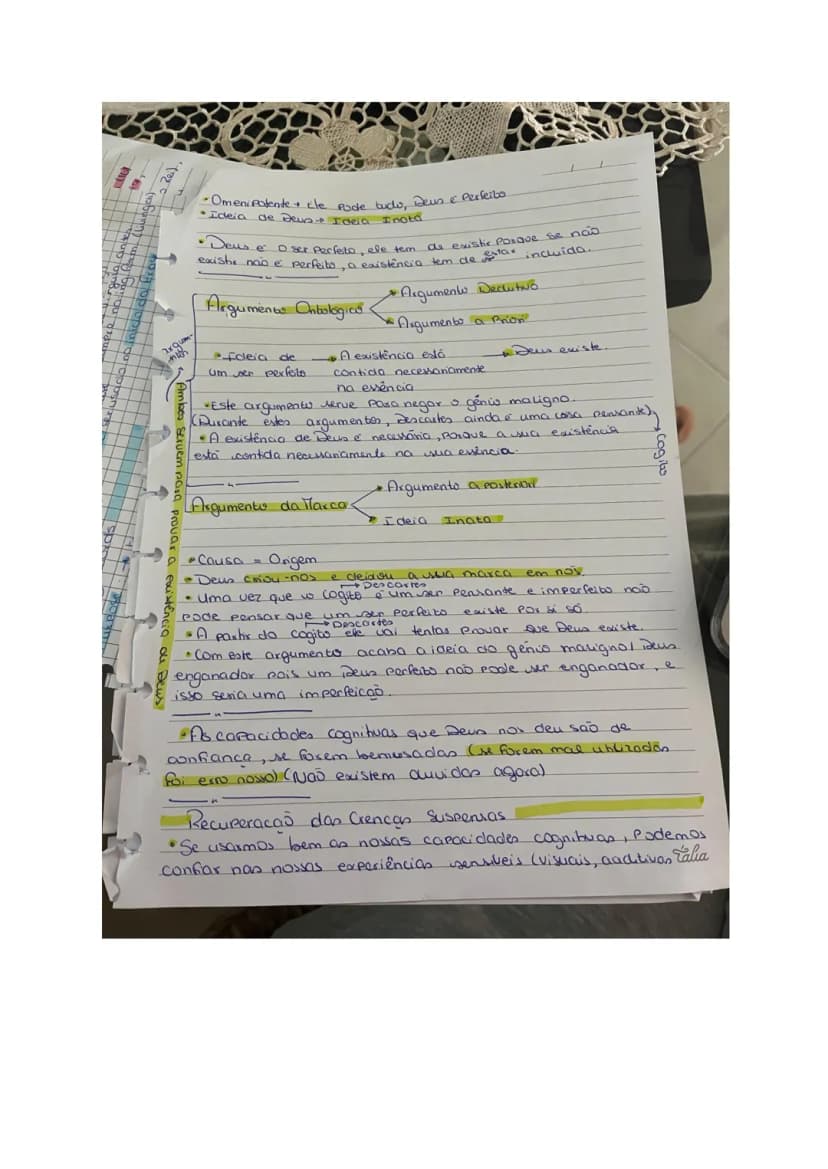 • Omenipotente → Ele Pode tudo, Deus é Perfeito
• Ideia de Deus → Ideia Inata
• Deus é o ser Perfeito, ele tem de existir Porque se não
existir não é perfeito, a existência tem de estar incluida.
Argumento Ontológico
→ Argumento Dedutivo
→ Argumento a Priori
• Ideia de → A existência está → Deus existe.
um ser perfeito contida necessariamente
na essência
• Este argumento serve Para negar o génio maligno.
(Durante estes argumentos, Descartes ainda é uma coisa pensante) → Cogito
• A existência de Deus é necessária, Porque a sua existência
está contida necessariamente na sua essência.
Argumento da Marca
→ Argumento a Posteriori
→ Ideia Inata
Ambos servem para provar a existência de Deus
• Causa = Origem
• Deus criou-nos e deixou a sua marca em nós.
→ Descartes
• Uma vez que o cogito é um ser Pensante e imperfeito não
Pode pensar que um ser Perfeito existe Por si só
→ Descartes
• A partir do cogito ele vai tentar Provar que Deus existe.
• Com este argumento acaba a ideia do génio maligno/Deus
enganador pois um Deus Perfeito não Pode ser enganador, e
isso seria uma imperfeição.
• As capacidades cognitivas que Deus nos deu são de
confiança, se forem bem usadas (se forem mal utilizadas
foi erro nosso) (Não existem duvidas agora)
Recuperação das Crenças Suspensas
• Se usarmos bem as nossas capacidades cognitivas, Podemos
confiar nas nossas experiências sensiveis (visuais, auditivas
Tália